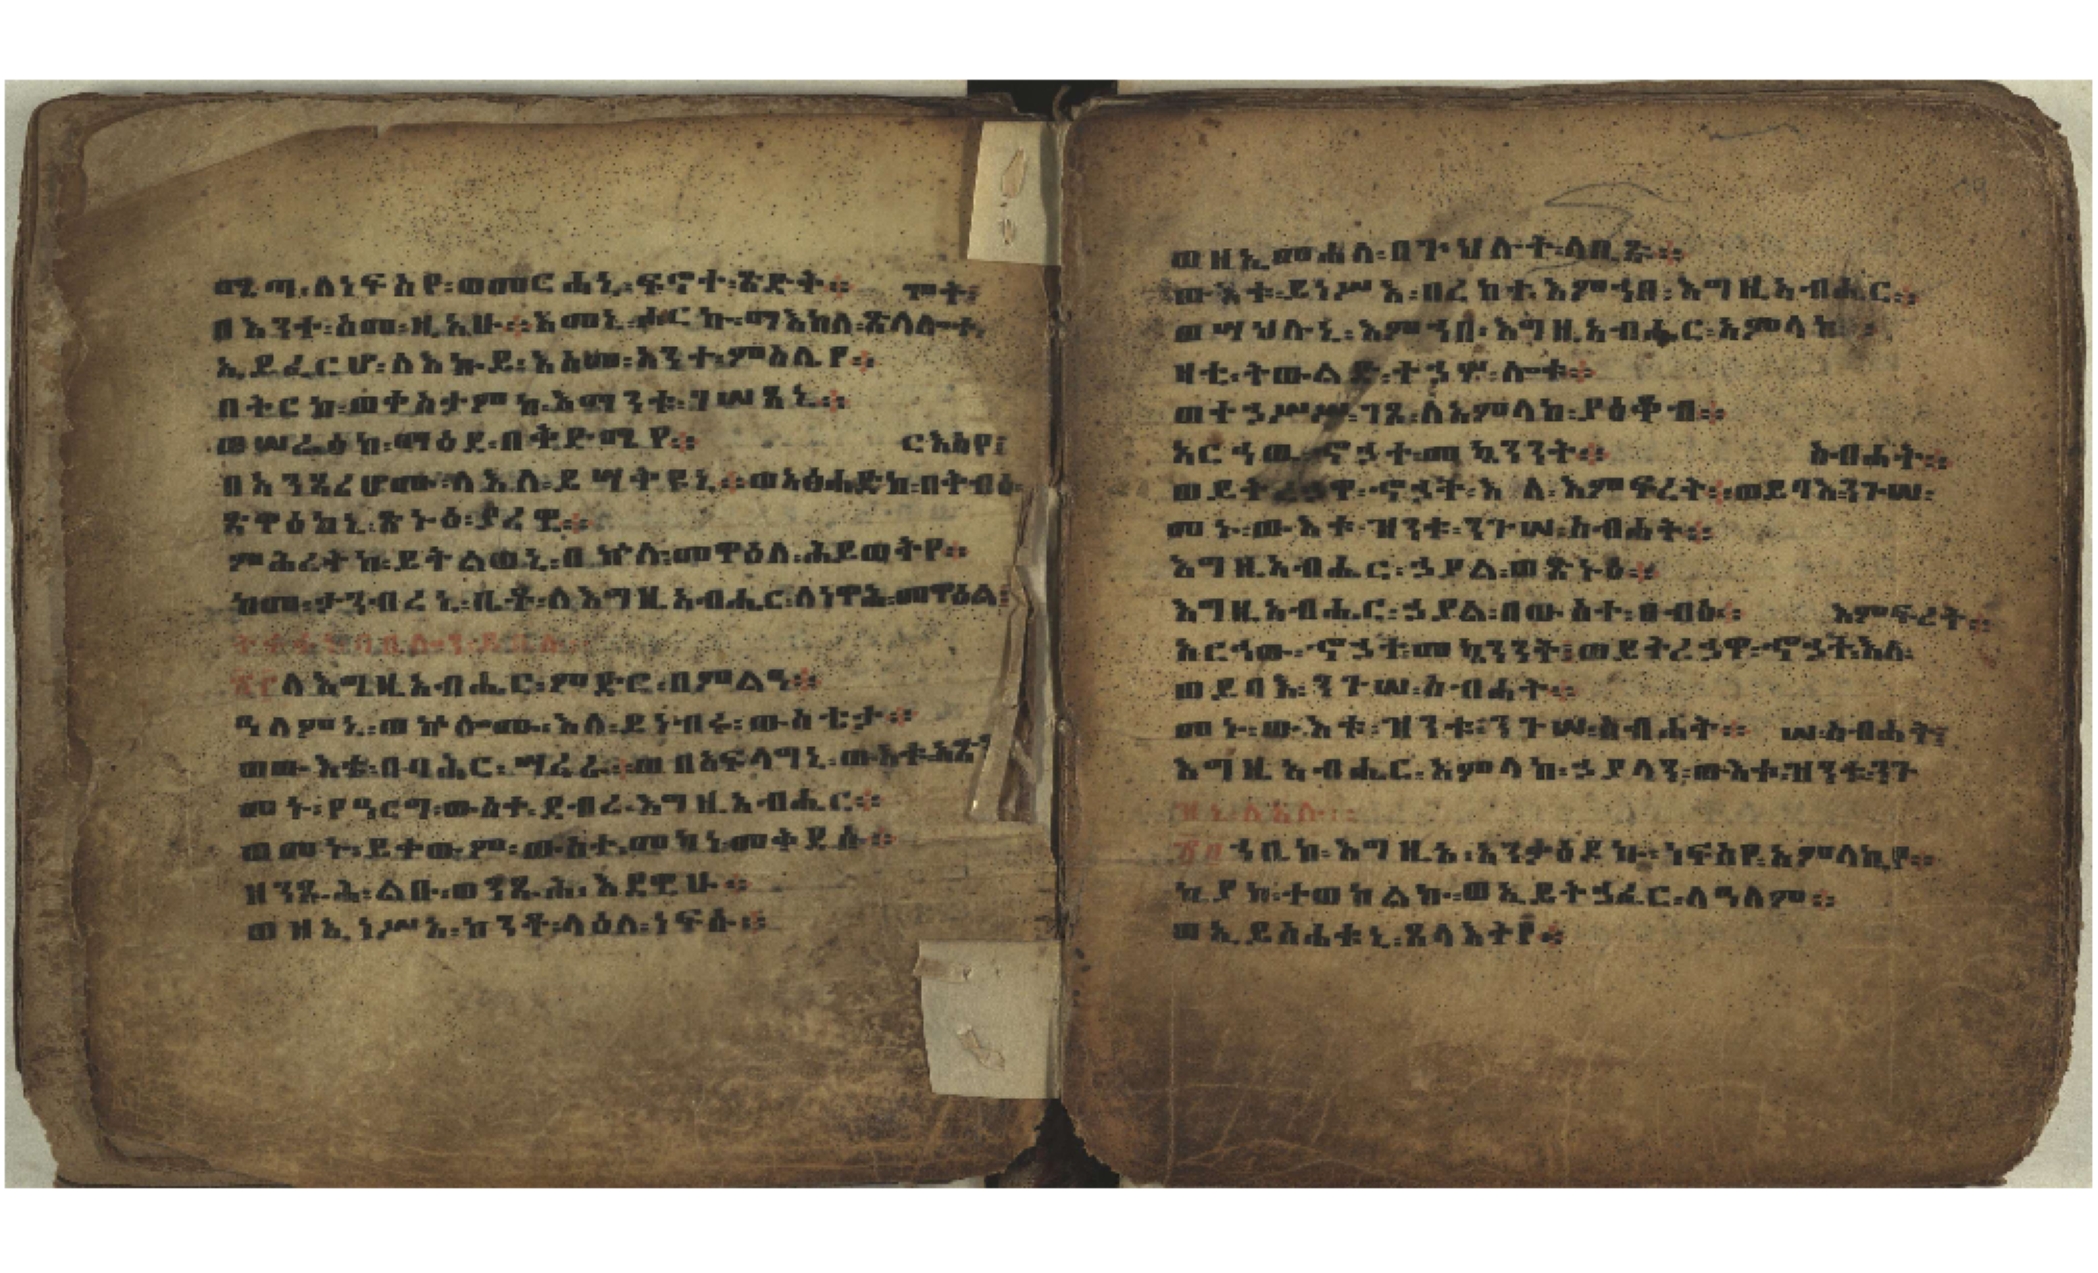 ሜጣ፡ለነፍስየ፡ወመርሐኒ፡ፍኖተ፡ጽድቅ። ሞት፤
በእንተ፡ስመ፡ዚአሁ።እመኒ፡ሖርኩ፡ማእከለ፡ጽላሎተ፡
ኢይፈርሆ፡ለእኩይ፡እስመ፡አንተ፡ምስሌየ።
በትርከ፡ወቀስታምከ፡እማንቱ፡ገሠጻኒ።
ወሠራዕከ፡ማዕደ፡በቅድሜየ። ርእስየ፤
በአንጻረሆሙ፡ለእለ፡ይሣቅዩኒ።ወአፅሐድከ፡በቅብዕ፡
ጽዋዕከኒ፡ጽኑዕ፡ያረዊ።
ምሕረትከ፡ይትልወኒ፡በኵሉ፡መዋዕለ፡ሕይወትየ።
ከመ፡ታንብረኒ፡ቤቶ፡ለእግዚአብሔር፡ለነዋኅ፡መዋዕል፤
፳፫ለእግዚአብሔር፡ምድር፡በምልዓ።
ዓለምኒ፡ወኵሎሙ፡እለ፡ይነብሩ፡ውስቴታ።
ወውእቱ፡በባሕር፡ሣረራ።ወበአፍላግኒ፡ውእቱ፡አጽን
መኑ፡የዓርግ፡ውስተ፡ደብረ፡እግዚአብሔር።
ወመኑ፡ይቀውም፡ውስተ፡መካነ፡መቅደሱ።
ዘንጹሕ፡ልቡ፡ወንጹሕ፡እደዊሁ።
ወዘኢነሥአ፡ከንቶ፡ላዕለ፡ነፍሱ።
ወዘኢመሐለ፡በጕህሉት፡ለቢጹ።
ውእቱ፡ይነሥእ፡በረከተ፡እምኀበ፡እግዚአብሔር።
ወሣህሉኒ፡እምኀበ፡እግዚአብሔር፡አምላክ።
ዛቲ፡ትውልድ፡ተኃሦሎቱ።
ወተኃሥሥ፡ገጸ፡ለአምላከ፡ያዕቆብ።
አርኀዉ፡ኖኃተ፡መኳንንት። ስብሐት።
ወይትረኃዋ፡ኖኃት፡እለ፡እምፍረት።ወይባእ፡ንጉሠ፡
መኑ፡ውእቱ፡ዝንቱ፡ንጉሠ፡ስብሐት።
እግዚአብሔር፡ኃያል፡ወጽኑዕ።
እግዚአብሔር፡ኃያል፡በውስተ፡ፀብዕ። እምፍረት።
አርኀዉ፡ኖኃተ፡መኳንንት፤ወይትረኃዋ፡ኖኃት፡እለ፡
ወይባእ፡ንጉሠ፡ስብሐት።
መኑ፡ውእቱ፡ዝንቱ፡ንጉሠ፡ስብሐት። ሠ፡ስብሐት፤
እግዚአብሔር፡አምላከ፡ኃያላን፡ውእቱ፡ዝንቱ፡ንጉ
፳፬ኀቤከ፡እግዚኦ፡አንቃዕደኩ፡ነፍስየ፡አምላኪየ።
ኪያከ፡ተወከልኩ፡ወኢይትኃፈር፡ለዓለም።
ወኢይስሐቁኒ፡ጸላእትየ።